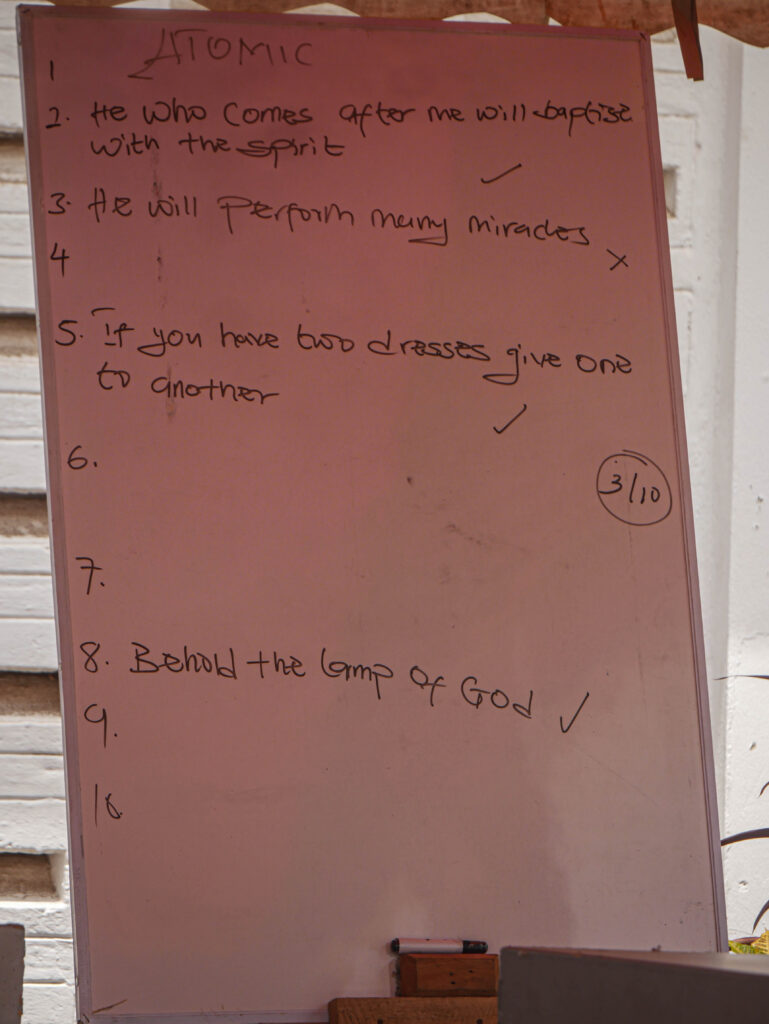 ATOMIC
1
2. He who comes after me will baptise
with the spirit
✓
3. He will perform many miracles
×
4
5. If you have two dresses give one
to another
✓
6.
3/10
7.
8. Behold the lamp of God ✓
9.
10.